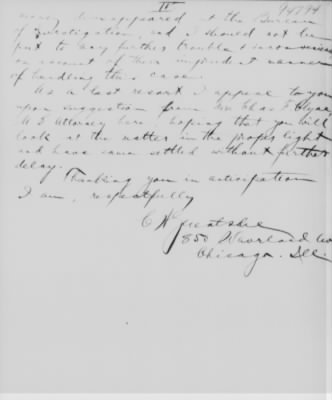 IV
94794
money disappeared at the Bureau
of Investigation, and I should not be
put to any further trouble & inconvenience
on account of their impudent manner
of handling this case.
As a last resort I appeal to you
upon suggestion from Mr Chas F Clyne
U S Attorney here, hoping that you will
look at the matter in the proper light
and have same settled without further
delay.
Thanking you in anticipation
I am, respectfully
C W
850
Chicago. Ill.